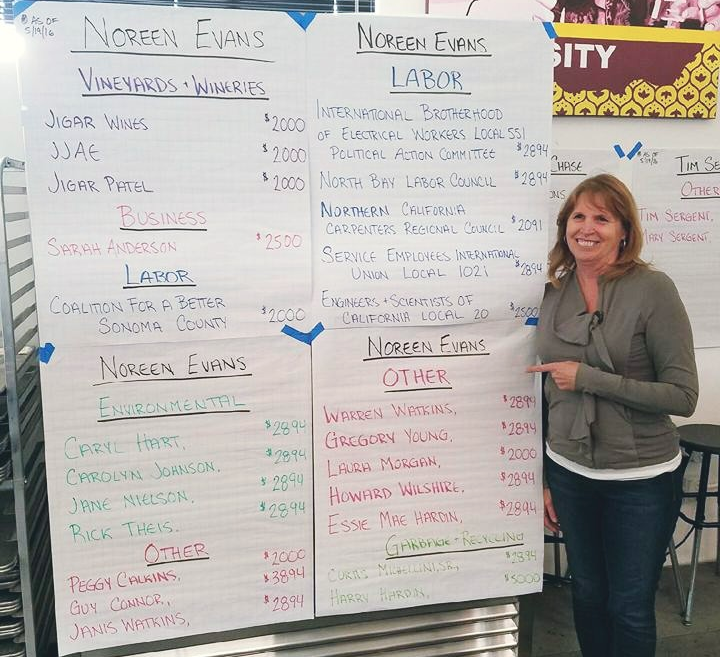 @ AS OF
5/19/16
NOREEN EVANS
VINEYARDS + WINERIES
JIGAR WINES $2000
JJAE $2000
JIGAR PATEL $2000
BUSINESS
SARAH ANDERSON $2500
LABOR
COALITION FOR A BETTER
SONOMA COUNTY $2000
NOREEN EVANS
LABOR
INTERNATIONAL BROTHERHOOD
OF ELECTRICAL WORKERS LOCAL 551
POLITICAL ACTION COMMITTEE $2894
NORTH BAY LABOR COUNCIL $2894
NORTHERN CALIFORNIA
CARPENTERS REGIONAL COUNCIL $2091
SERVICE EMPLOYEES INTERNATIONAL
UNION LOCAL 1021 $2894
ENGINEERS + SCIENTISTS OF
CALIFORNIA LOCAL 20 $2500
NOREEN EVANS
ENVIRONMENTAL
CARYL HART, $2894
CAROLYN JOHNSON, $2894
JANE NIELSON, $2894
RICK THEIS. $2894
OTHER
PEGGY CALKINS, $2000
GUY CONNOR, $3894
JANIS WATKINS, $2894
NOREEN EVANS
OTHER
WARREN WATKINS, $2894
GREGORY YOUNG, $2894
LAURA MORGAN, $2000
HOWARD WILSHIRE, $2894
ESSIE MAE HARDIN, $2894
GARBAGE + RECYCLING
CURTIS MICHELLINI, SR., $2894
HARRY HARDIN, $5000
SITY
CHASE
NS
@ AS OF
5/19/16
TIM SE
OTHER
TIM SERGENT,
MARY SERGENT,